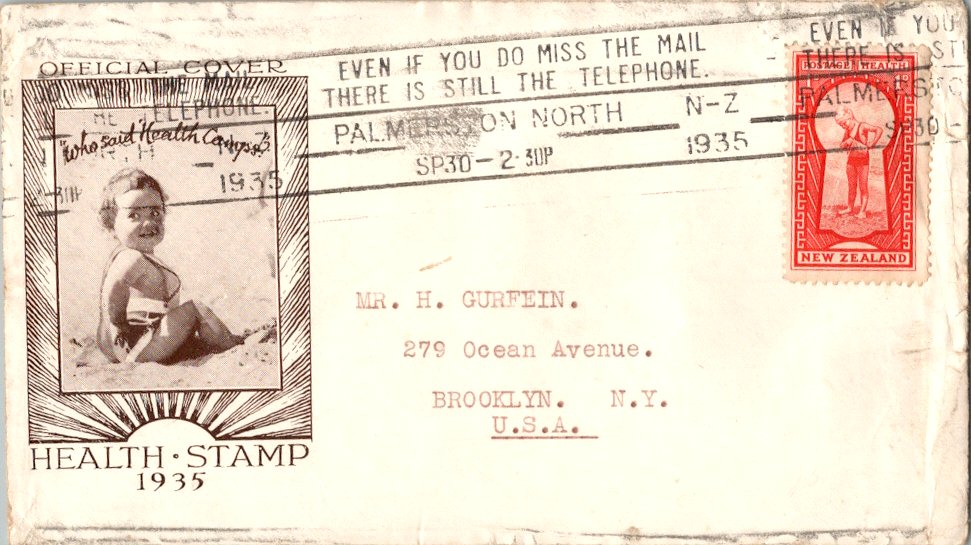 OFFICIAL COVER
"Who said Health Camps?"
HEALTH · STAMP
1935
EVEN IF YOU DO MISS THE MAIL
THERE IS STILL THE TELEPHONE.
PALMERSTON NORTH N-Z
SP30-2·30P 1935
ELEPHONE.
1935
EVEN IF YOU
THERE IS STI
PALMERSTO
SP30-
POSTAGE HEALTH
NEW ZEALAND
MR. H. GURFEIN.
279 Ocean Avenue.
BROOKLYN. N.Y.
U.S.A.